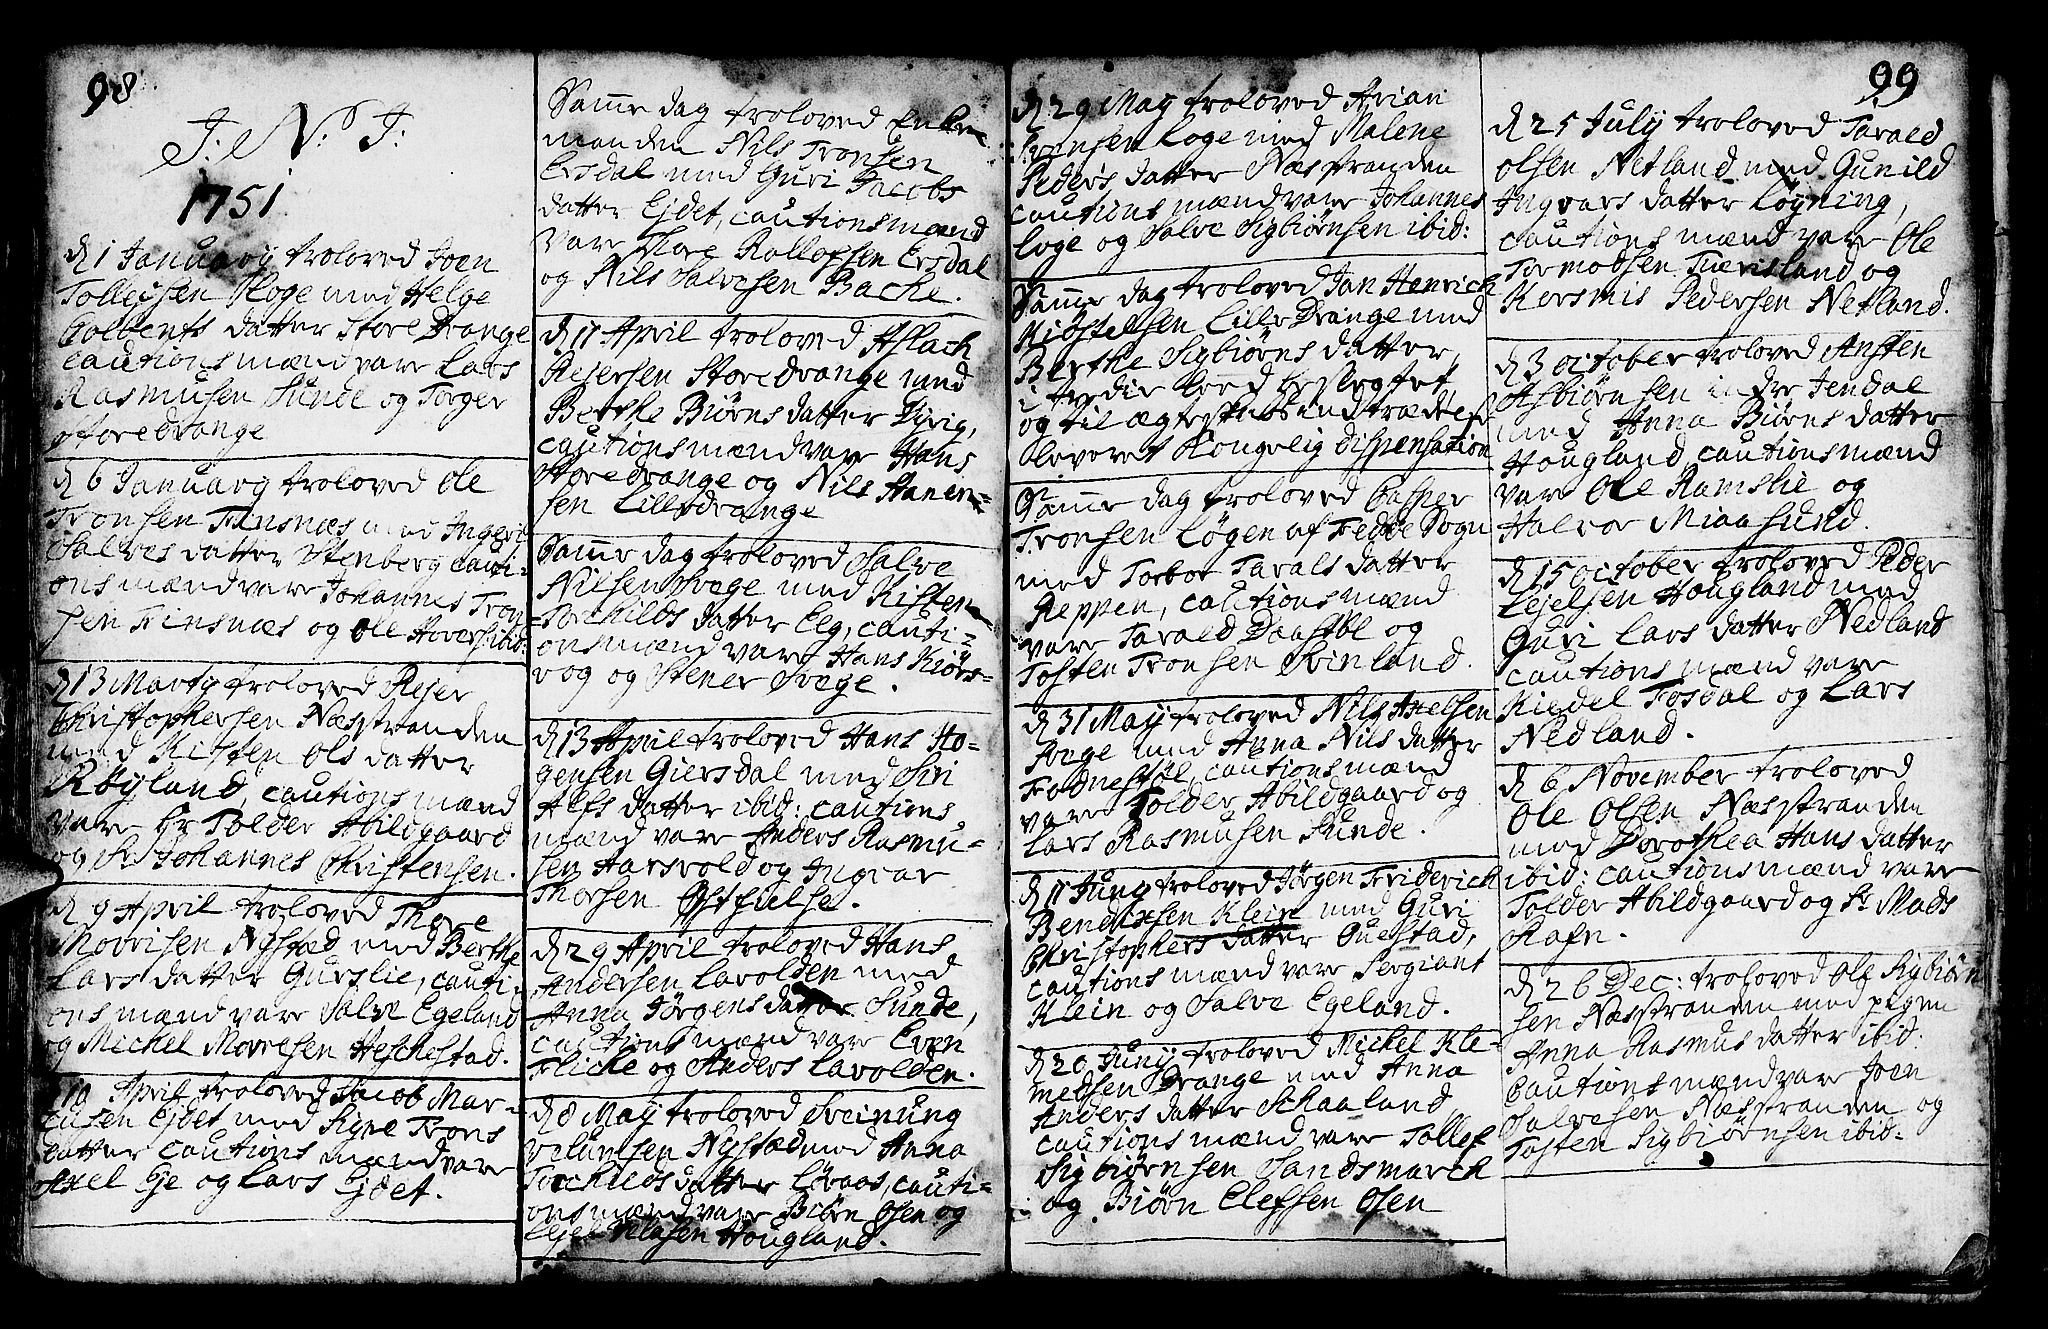 98
J: N: J:
1751
d 1 January troloved Joen
Tollefsen Skoge med Helge
Colbents datter Store Drange
cautionsmænd vare Lars
Rasmusen Sunde og Torger
Storedrange
d 6 January troloved Ole
Tronsen Finsnæs med Ingeri
Salves datter Stenberg cauti-
ons mænd vare Johannes Tron
sen Finsnæs og Ole Hovers ibid:
d 13 Marty troloved Rejer
Christophersen Næsstranden
med Kisten Ols datter
Røyland, cautions mænd
vare Hr Tolder Abildgaard
og Sr Johannes Christensen.
d 9 April troloved Thore
Morrisen Nystæd med Berthe
Lars datter Gurslie, cauti-
ons mænd vare Salve Egeland
og Michel Moresen Heskestad.
d 10 April troloved Jacob Mar-
cusen Ejdet med Signe Trons
datter cautions mænd vare
Axel Eje og Lars Ejdet.
Samme dag troloved Enke-
manden Nils Tronsen
Ersdal med Guri Jacobs
datter Ejdet, cautionsmænd
vare Thore Rollofsen Ersdal
og Nils Salvesen Backe.
d 11 April troloved Aslach
Rejersen Storedrange med
Berthe Biørns datter Dyrig,
cautionsmænd vare Hans
Storedrange og Nils Hansen-
sen Lilledrange
Samme dag troloved Salve
Nilsen Svege med Kisten
Torchilds datter Eeg, cauti-
onsmænd vare Hans Kiørs-
vog og Stener Svege.
d 13 April troloved Hans Ho-
gensen Giersdal med Siri
Alfs datter ibid: cautions
mænd vare Anders Rasmu-
sen Harsvold og Ingvar
Thorsen Østhielse.
d 29 April troloved Hans
Andersen Lavolden med
Anna Jørgens datter Sunde,
cautions mænd vare Even
Flicke og Anders Lavolden.
d 8 May troloved Sveinung
Velumsen Nystæd med Anna
Torchilds datter Løvaas, cauti-
onsmænd vare Biørn Osen og
Lejel Velasen Hougland.
d 29 May troloved Arian
Svensen Loge med Malene
Peders datter Næsstranden
cautions mænd vare Johannes
Loge og Salve Sigbiørnsen ibid:
Samme dag troloved Jan Henrich
Kiøstelsen Lille Drange med
Berthe Sigbiørns datter,
i tredie Leed beslegtet
og til ægteskab indtrædelse
leveret Kongelig dispensation
Samme dag troloved Casper
Tronsen Løgen af Fedde Sogn
med Torbor Tarals datter
Reppen, cautions mænd
vare Tarald Daastøl og
Tosten Tronsen Svinland.
d 31 May troloved Nils Axelsen
Jorge med Anna Nils datter
Fodnestøl, cautions mænd
vare Tolder Abildgaard og
Lars Rasmusen Sunde.
d 11 Juny troloved Jørgen Friderich
Bendixsen Klein med Guri
Christophers datter Questad,
cautions mænd vare Sergiant
Klein og Salve Egeland.
d 20 Juny troloved Michel Kle-
medsen Drange med Anna
Anders datter Skaaland
cautions mænd vare Tollef
Sigbiørnsen Sandsmarck
og Biørn Elefsen Osen
99
d 25 July troloved Tarald
Olsen Netland med Gunild
Ingvars datter Løyning,
cautions mænd vare Ole
Tormodsen Tuerisland og
Kersmis Pedersen Netland.
d 3 october troloved Ansten
Asbiørnsen indre Jendal
med Anna Biørns datter
Hougland cautionsmænd
vare Ole Ramslie og
Halvor Miaasund.
d 15 october troloved Peder
Lejelsen Hougland med
Guri Lars datter Nedland
cautions mænd vare
Kiedel Fosdal og Lars
Nedland.
d 6 November troloved
Ole Olsen Næsstranden
med Dorothea Hans datter
ibid: cautions mænd vare
Tolder Abildgaard og Sr Mads
Rafn.
d 26 Dec: troloved Ole Sigbiørn
sen Næsstranden med pigen
Anna Rasmus datter ibid:
Cautions mænd vare Joen
Salvesen Næsstranden og
Tosten Sigbiørnsen ibid: